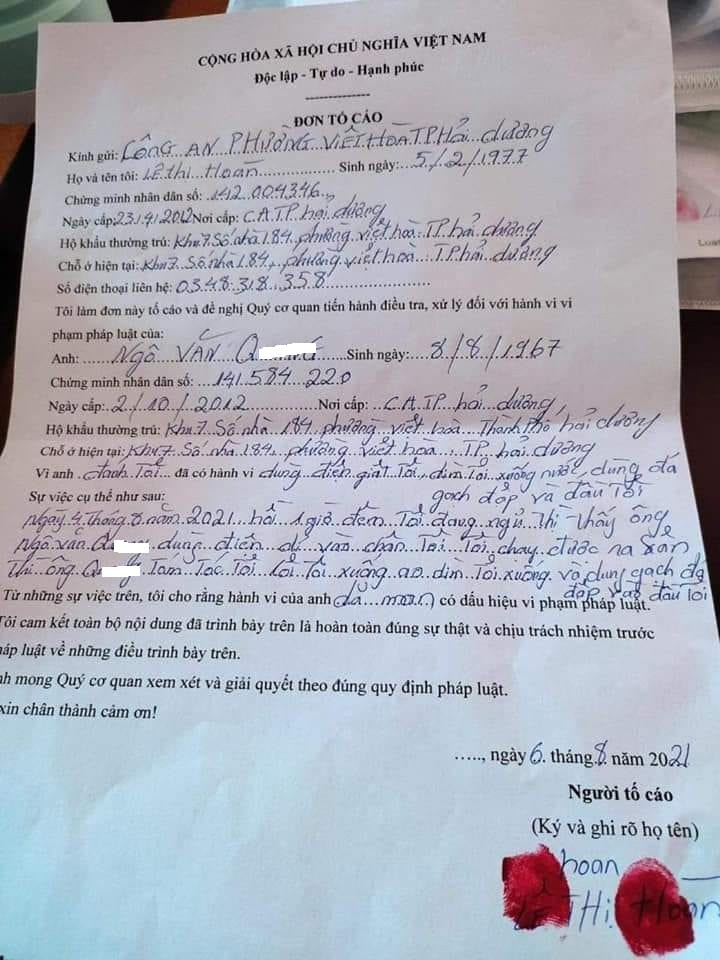 CỘNG HÒA XÃ HỘI CHỦ NGHĨA VIỆT NAM
Độc lập - Tự do - Hạnh phúc
--------------
ĐƠN TỐ CÁO
Kính gửi: CÔNG AN PHƯỜNG VIỆT HOÀ TP Hải dương
Họ và tên tôi: Lê thị Hoan Sinh ngày: 5/2/1977
Chứng minh nhân dân số: 142004346
Ngày cấp: 23/4/2012 Nơi cấp: C.A.TP hải dương
Hộ khẩu thường trú: Khu 7 Số nhà 184 phường việt hoà TP hải dương
Chỗ ở hiện tại: Khu 7 Số nhà 184 phường việt hoà TP hải dương
Số điện thoại liên hệ: 0348 318 358
Tôi làm đơn này tố cáo và đề nghị Quý cơ quan tiến hành điều tra, xử lý đối với hành vi vi
phạm pháp luật của:
Anh: NGÔ VĂN Sinh ngày: 8/8/1967
Chứng minh nhân dân số: 141.584.220
Ngày cấp: 2/10/2012 Nơi cấp: C.A.TP hải dương
Hộ khẩu thường trú: Khu 7 Số nhà 184 phường việt hoà Thành Phố hải dương
Chỗ ở hiện tại: Khu 7 Số nhà 184 phường việt hoà TP hải dương
Vì anh đánh Tôi đã có hành vi dùng điện giật Tôi, dìm Tôi xuống nước, dùng đá
gạch đập và đầu Tôi
Sự việc cụ thể như sau:
Ngày 4 Tháng 8 năm 2021 hồi 1 giờ đêm Tôi đang ngủ Thì Thấy ông
Ngô văn dùng điện dí vào chân Tôi Tôi chạy được ra sân
Thì ông Tóm Tóc Tôi lôi Tôi xuống ao dìm Tôi xuống và dùng gạch đá
đập vào đầu Tôi
Từ những sự việc trên, tôi cho rằng hành vi của anh dã man có dấu hiệu vi phạm pháp luật.
Tôi cam kết toàn bộ nội dung đã trình bày trên là hoàn toàn đúng sự thật và chịu trách nhiệm trước
háp luật về những điều trình bày trên.
nh mong Quý cơ quan xem xét và giải quyết theo đúng quy định pháp luật.
xin chân thành cảm ơn!
....., ngày 6 tháng 8 năm 2021
Người tố cáo
(Ký và ghi rõ họ tên)
hoan
LÊ THỊ Hoan